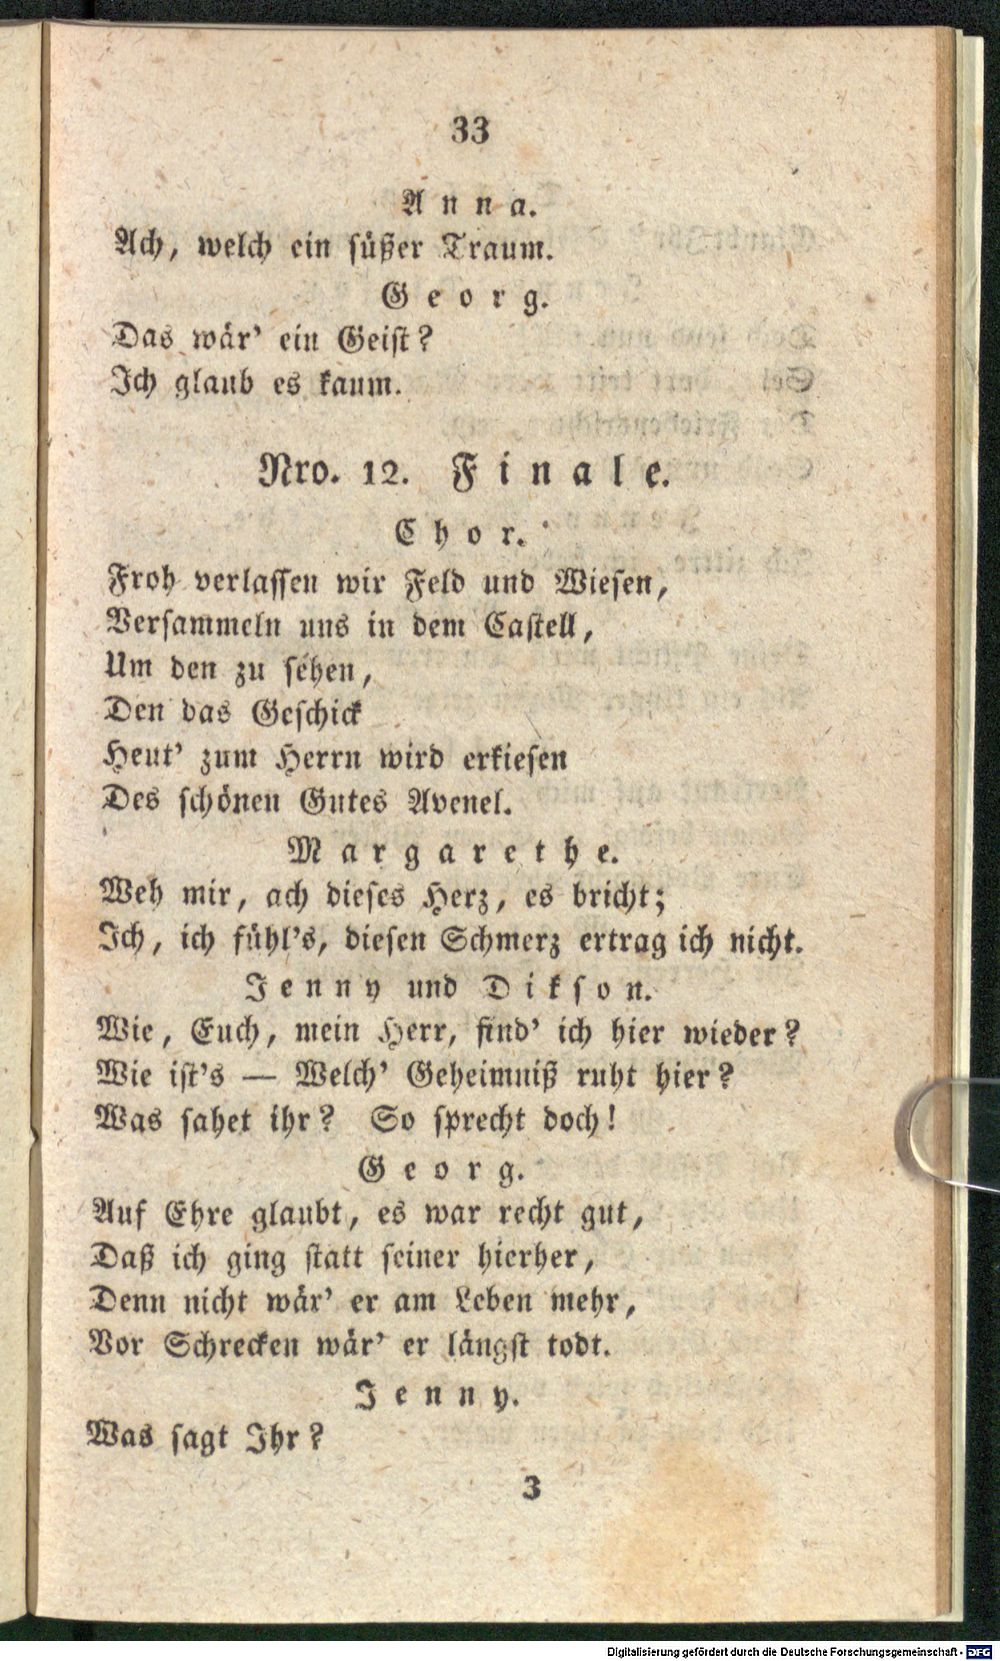 33
Anna.
Ach, welch ein süßer Traum.
Georg.
Das wär' ein Geist?
Ich glaub es kaum.
Nro. 12. Finale.
Chor.
Froh verlassen wir Feld und Wiesen,
Versammeln uns in dem Castell,
Um den zu sehen,
Den das Geschick
Heut' zum Herrn wird erkiesen
Des schönen Gutes Avenel.
Margarethe.
Weh mir, ach dieses Herz, es bricht;
Ich, ich fühl's, diesen Schmerz ertrag ich nicht.
Jenny und Dikson.
Wie, Euch, mein Herr, find' ich hier wieder?
Wie ist's — Welch' Geheimniß ruht hier?
Was sahet ihr? So sprecht doch!
Georg.
Auf Ehre glaubt, es war recht gut,
Daß ich ging statt seiner hierher,
Denn nicht wär' er am Leben mehr,
Vor Schrecken wär' er längst todt.
Jenny.
Was sagt Ihr?
3
Digitalisierung gefördert durch die Deutsche Forschungsgemeinschaft - DFG